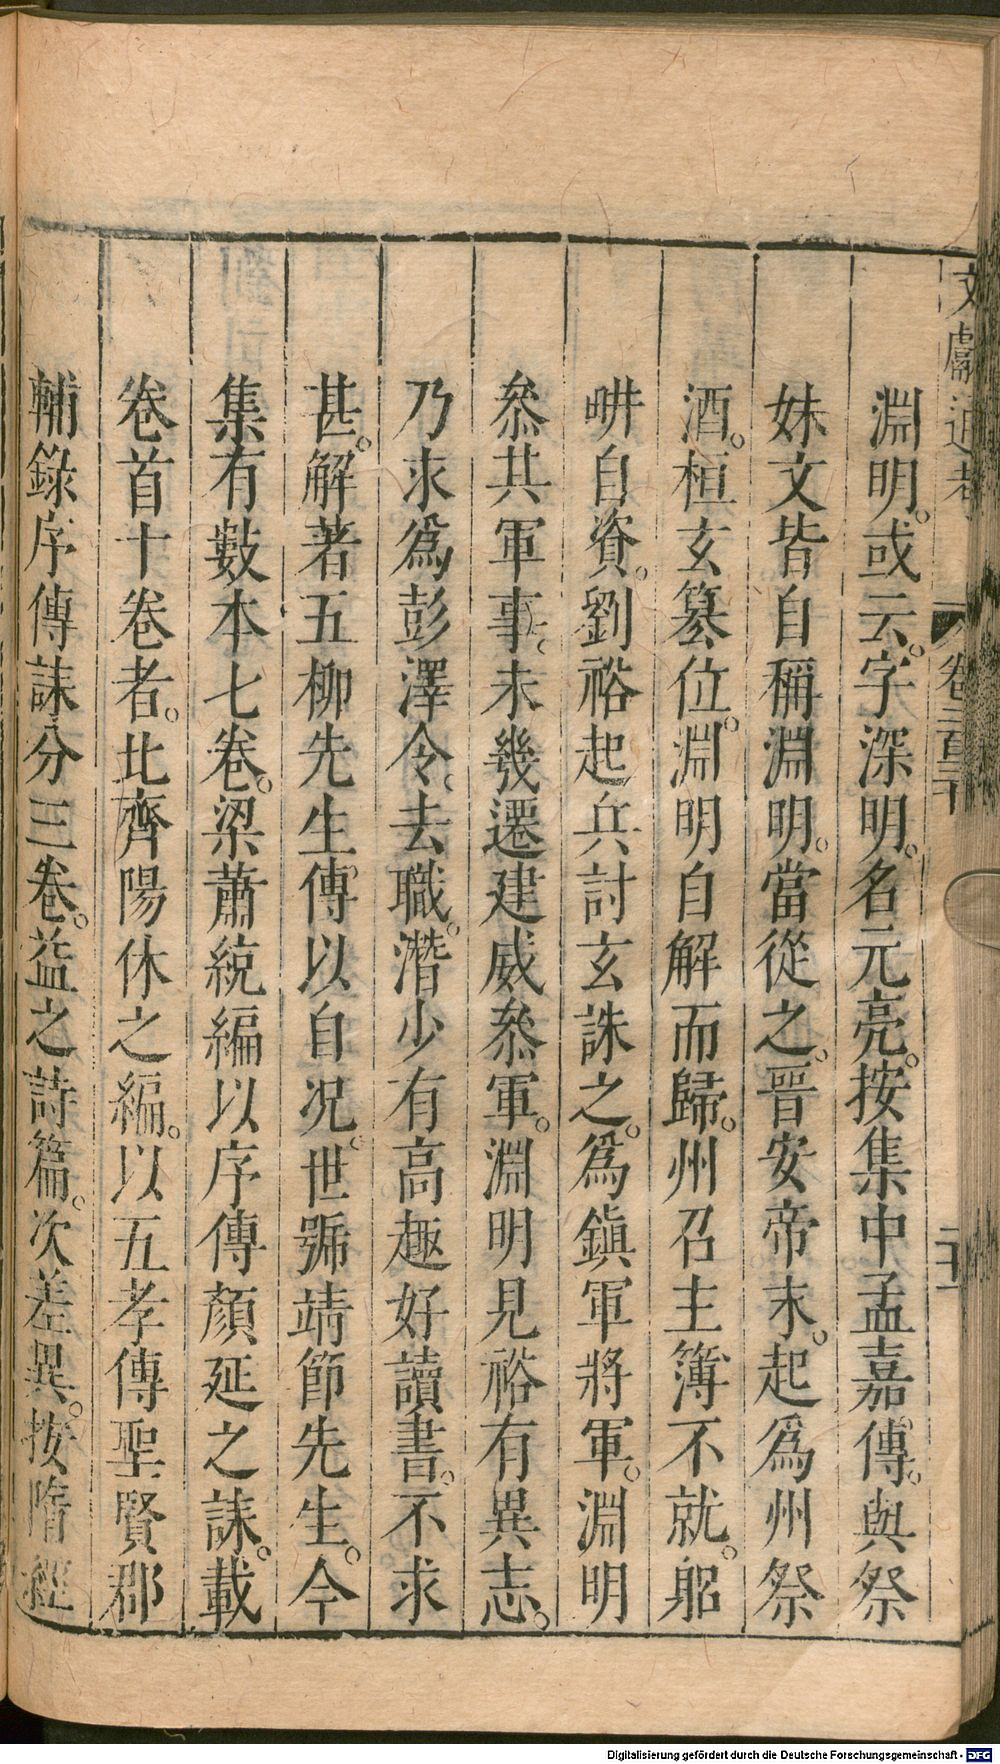 文獻通考 卷二百三十 二十一
淵明。或云。字深明。名元亮。按集中孟嘉傳。與祭
妹文皆自稱淵明。當從之。晉安帝末。起爲州祭
酒。桓玄篡位。淵明自解而歸。州召主簿不就。躬
畊自資。劉裕起兵討玄誅之。爲鎭軍將軍。淵明
叅其軍事。未幾遷建威叅軍。淵明見裕有異志。
乃求爲彭澤令。去職。潛少有高趣好讀書。不求
甚。解著五柳先生傳以自况。世號靖節先生。今
集有數本七卷。梁蕭統編以序傳顏延之誄。載
卷首十卷者。北齊陽休之編。以五孝傳聖賢郡
輔錄序傳誄分三卷。益之詩篇。次差異。按隋經
Digitalisierung gefördert durch die Deutsche Forschungsgemeinschaft - DFG